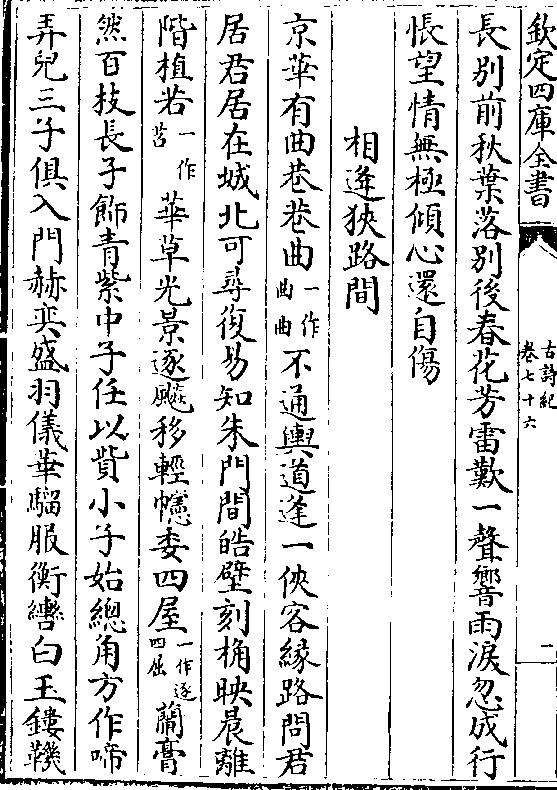 欽定四庫全書
古詩紀
卷七十六
二
長别前秋葉落别後春花芳雷歎一聲響雨淚忽成行
悵望情無極傾心還自傷
相逢狹路間
京華有曲巷巷曲一作曲曲不通輿道逢一俠客緣路問君
居君居在城北可尋復易知朱門間皓壁刻桷映晨離
階植若一作苔華草光景逐飈移輕幰委四屋一作逐四屈蘭膏
然百枝長子飾青紫中子任以貲小子始總角方作啼
弄兒三子俱入門赫奕盛羽儀華騮服衡轡白玉鏤鞿